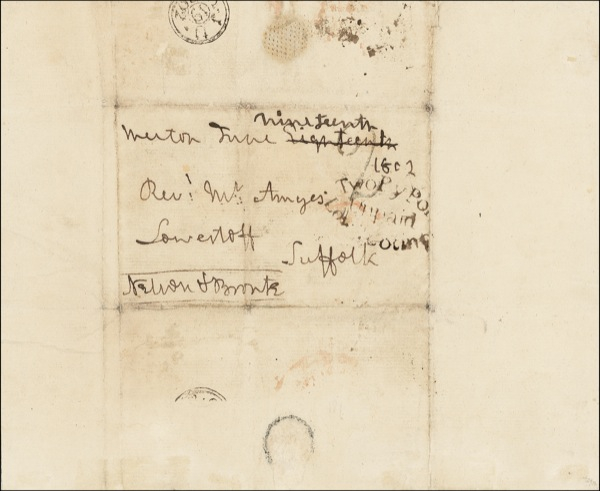 nineteenth
Merton June Eighteenth
1802
Revd. Mr. Amyes
Lowestoff
Suffolk
Nelson & Bronte
Two Py Po
Unpaid